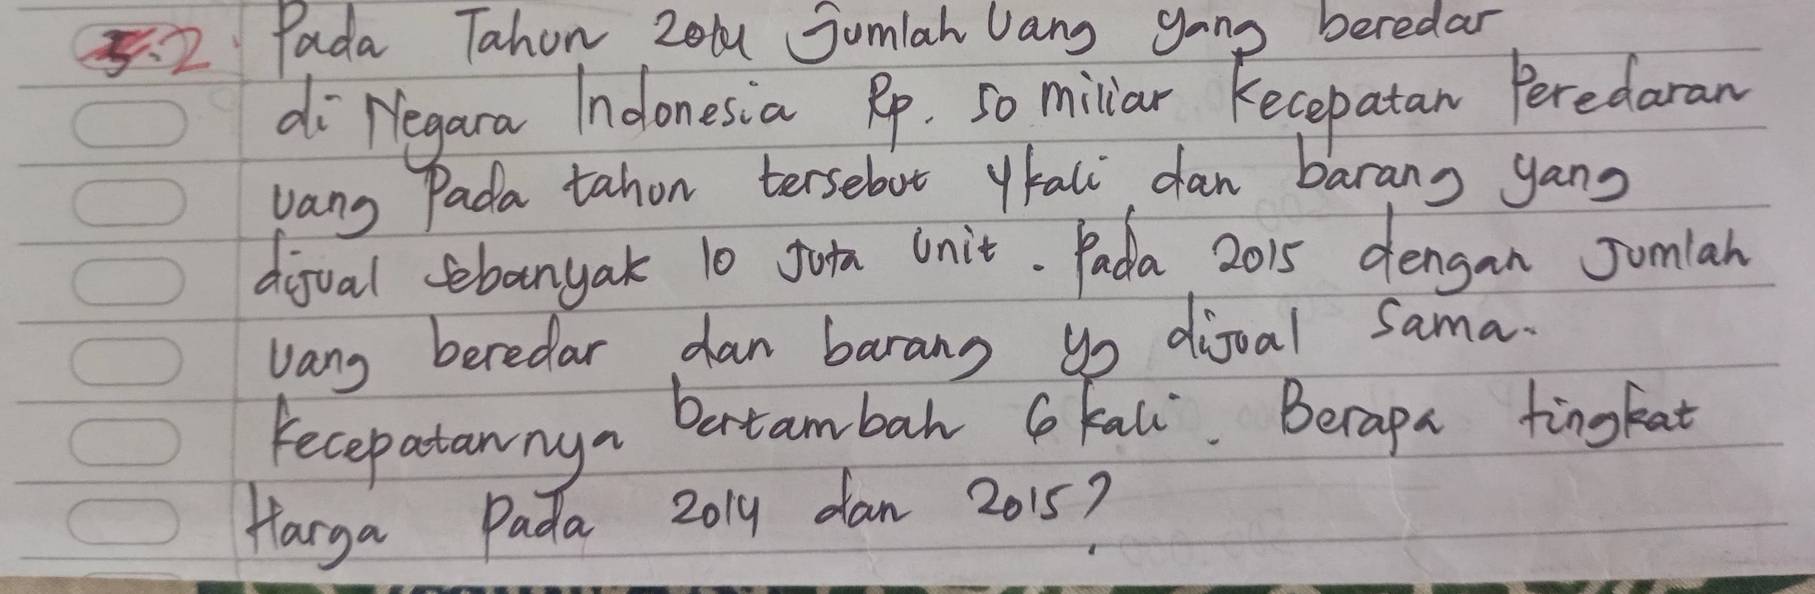 2. Pada Tahun 2014 Jumlah Uang yang beredar
di Negara Indonesia Rp. 50 miliar Kecepatan Peredaran
uang Pada tahun tersebut 4 kali dan barang yang
dijual sebanyak 10 Juta Unit. Pada 2015 dengan Jumlah
uang beredar dan barang yg dijual sama.
Kecepatannya bertambah 6 kali. Berapa tingkat
Harga Pada 2014 dan 2015?